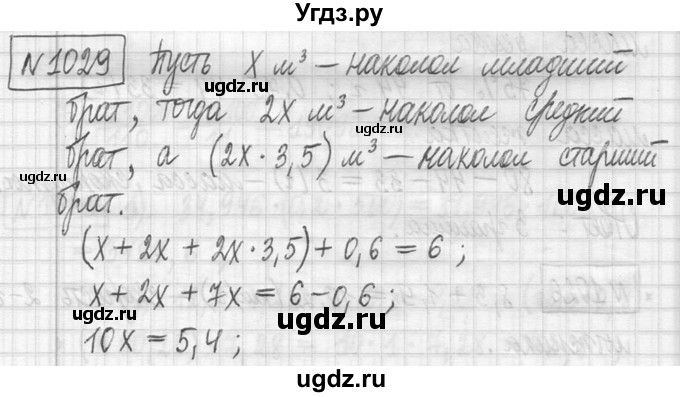 Угдз.ру
№1029 Пусть x м³ – наколол младший
брат, тогда 2x м³ – наколол средний
брат, а (2x · 3,5) м³ – наколол старший
брат.
(x + 2x + 2x · 3,5) + 0,6 = 6 ;
x + 2x + 7x = 6 – 0,6 ;
10x = 5,4 ;
ugdz.ru
ugdz.ru
ugdz.ru
ugdz.ru
ugdz.ru
ugdz.ru
ugdz.ru
ugdz.ru